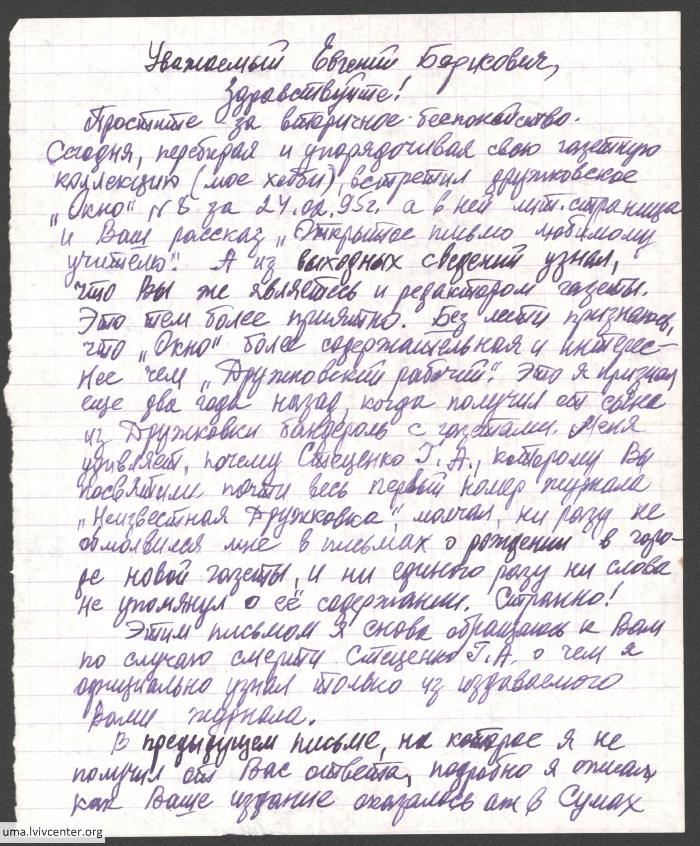 Уважаемый Евгений Барткович,
Здравствуйте!
Простите за вторичное беспокойство.
Сегодня, перебирая и упорядочивая свою газетную
коллекцию (мое хобби), встретил дружковское
"Окно" №8 за 24.02.95г. а в ней лит. страница
и Ваш рассказ "Открытое письмо любимому
учителю". А из выходных сведений узнал,
что Вы же являетесь и редактором газеты.
Это тем более приятно. Без лести признаюсь,
что "Окно" более содержательная и интерес-
нее чем "Дружковский рабочий". Это я признал
еще два года назад, когда получил от сына
из Дружковки бандероль с газетами. Меня
удивляет, почему Стеценко Г.А., которому Вы
посвятили почти весь первый номер журнала
"Неизвестная Дружковка", молчал, ни разу не
обмолвился мне в письмах о рождении в горо-
де новой газеты, и ни единого разу ни слова
не упомянул о её содержании. Странно!
Этим письмом я снова обращаюсь к Вам
по случаю смерти Стеценко Г.А. о чем я
официально узнал только из издаваемого
Вами журнала.
В предыдущем письме, на которое я не
получил от Вас ответа, подробно я описал,
как Ваше издание оказалось аж в Сумах
uma.lvivcenter.org